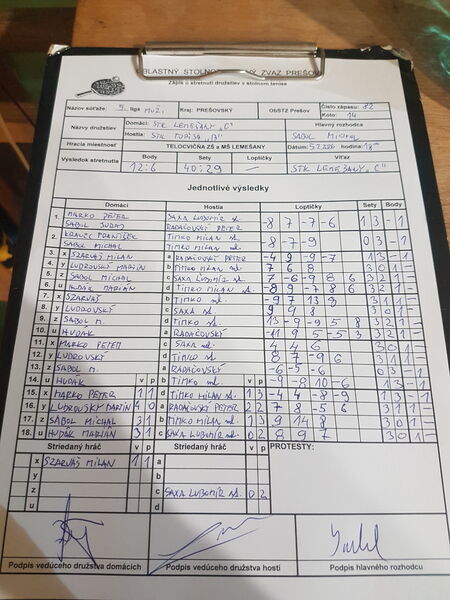 OBLASTNÝ STOLNOTENISOVÝ ZVAZ PREŠOV
Zápis o stretnutí družstiev v stolnom tenise
Názov súťaže: 5. liga MUŽI Kraj: PREŠOVSKÝ ObSTZ Prešov Číslo zápasu: 82
Kolo: 14
Názov družstiev Domáci: STK LEMEŠANY "C" Hlavný rozhodca
Hostia: STK "B" SABOL MICHAL
Hracia miestnosť TELOCVIČŇA ZŠ a MŠ LEMEŠANY Dátum: hodina:
Výsledok stretnutia Body Sety Loptičky Víťaz
12:6 40:29 STK LEMEŠANY "C"
Jednotlivé výsledky
Domáci Hostia Loptičky Sety Body
1. MARKO PETER SAXA ĽUBOMÍR st. -8 7 -7 -6 1 3 - 1
SABOL RADAČOVSKÝ PETER
2. FRANTIŠEK TIMKO MILAN st. -8 -7 -9 0 3 - 1
SABOL MICHAL TIMKO MILAN ml.
3. x SZARVAŠ MILAN a RADAČOVSKÝ PETER -4 9 -9 -7 1 3 - 1
4. y LUDROVSKÝ MARTIN b TIMKO MILAN ml. 7 6 8 3 0 1 -
5. z SABOL MICHAL c SAXA ĽUBOMÍR st. 7 -6 -9 8 6 3 2 1 -
6. u HUDÁK MARIÁN d TIMKO MILAN st. -8 9 -7 8 6 3 2 1 -
7. x SZARVAŠ b TIMKO ml. -9 7 13 9 3 1 1 -
8. y LUDROVSKÝ c SAXA 9 9 8 3 0 1 -
9. z SABOL M. d TIMKO st. 13 -9 -9 5 8 3 2 1 -
10. u HUDÁK a RADAČOVSKÝ 3 2 1 -
11. x MARKO PETER c SAXA 4 4 6 3 0 1 -
12. y LUDROVSKÝ d TIMKO st. 8 7 -9 6 3 1 1 -
13. z SABOL M. a RADAČOVSKÝ -6 -5 -6 0 3 - 1
14. u HUDÁK v p b TIMKO ml. v p -9 -8 10 -6 1 3 - 1
15. x MARKO PETER 1 1 d TIMKO MILAN st. 1 3 -4 4 -8 -9 1 3 - 1
16. y LUDROVSKÝ MARTIN 4 0 a RADAČOVSKÝ PETER 2 2 7 8 -5 6 3 1 1 -
17. z SABOL MICHAL 3 1 b TIMKO MILAN ml. 1 3 9 14 8 3 0 1 -
18. u HUDÁK MARIÁN 3 1 c SAXA ĽUBOMÍR ml. 0 2 8 9 7 3 0 1 -
Striedaný hráč v p Striedaný hráč v p PROTESTY:
x SZARVAŠ MILAN 1 1 a
y b
z c SAXA ĽUBOMÍR st. 0 2
u d
Podpis vedúceho družstva domácich Podpis vedúceho družstva hostí Podpis hlavného rozhodcu